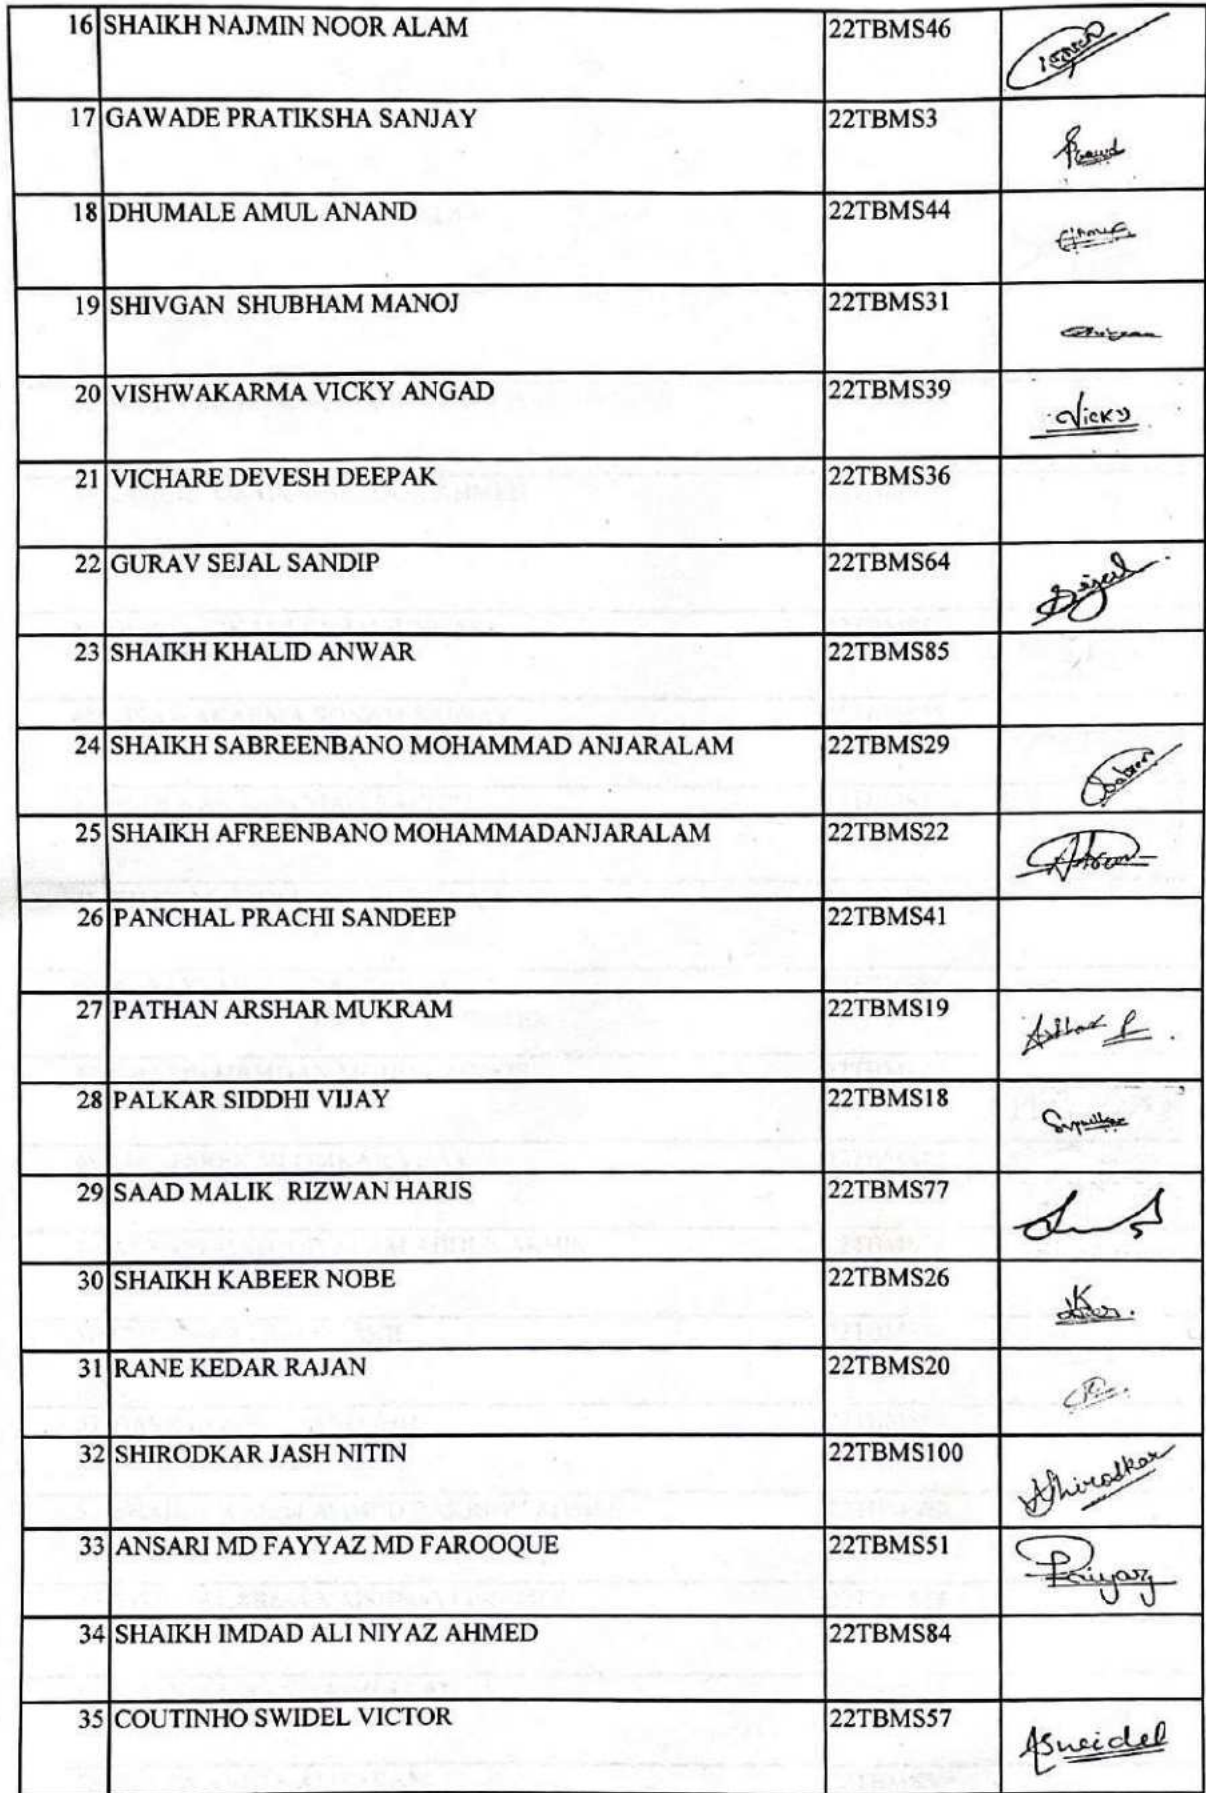 16 SHAIKH NAJMIN NOOR ALAM 22TBMS46
17 GAWADE PRATIKSHA SANJAY 22TBMS3
18 DHUMALE AMUL ANAND 22TBMS44
19 SHIVGAN SHUBHAM MANOJ 22TBMS31
20 VISHWAKARMA VICKY ANGAD 22TBMS39 Vicky
21 VICHARE DEVESH DEEPAK 22TBMS36
22 GURAV SEJAL SANDIP 22TBMS64
23 SHAIKH KHALID ANWAR 22TBMS85
24 SHAIKH SABREENBANO MOHAMMAD ANJARALAM 22TBMS29
25 SHAIKH AFREENBANO MOHAMMADANJARALAM 22TBMS22
26 PANCHAL PRACHI SANDEEP 22TBMS41
27 PATHAN ARSHAR MUKRAM 22TBMS19
28 PALKAR SIDDHI VIJAY 22TBMS18
29 SAAD MALIK RIZWAN HARIS 22TBMS77
30 SHAIKH KABEER NOBE 22TBMS26
31 RANE KEDAR RAJAN 22TBMS20
32 SHIRODKAR JASH NITIN 22TBMS100
33 ANSARI MD FAYYAZ MD FAROOQUE 22TBMS51
34 SHAIKH IMDAD ALI NIYAZ AHMED 22TBMS84
35 COUTINHO SWIDEL VICTOR 22TBMS57